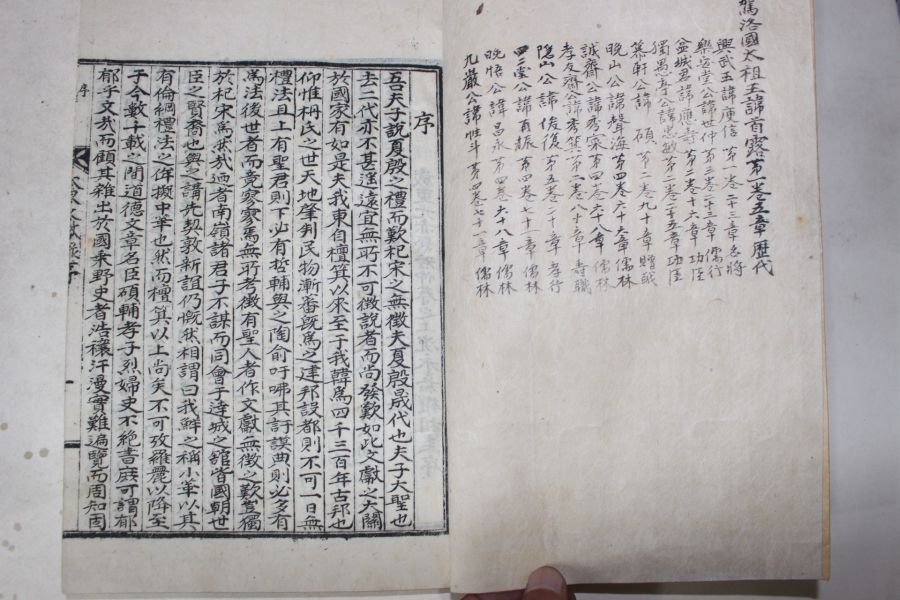 駕洛國太祖王諱首露 第一卷五章 歷代
興武王諱庾信 第一卷二十三章 名將
樂安堂公諱世仲 第三卷二十三章 儒行
益城君諱應壽 第二卷十六章 功臣
獨愚公諱忠敏 第二卷二十五章 功臣
慕軒公諱 碩 第二卷九十章 贈職
晩山公諱聲海 第四卷六十六章 儒林
誠齋公諱秀 第四卷六十八章 儒林
孝友齋公諱秀 第二卷八十章 壽職
隱山公諱 俊 第五卷二十章 孝行
四雲公諱 振 第四卷七十二章 儒林
晩悟公諱昌永 第四卷六十八章 儒林
九巖公諱 斗 第四卷七十二章 儒林
序
吾夫子說夏殷之禮而歎杞宋之無徵夫夏殷晟代也夫子大聖也
去二代亦不甚遥遠宜無所不可徵說者而尚發歎如此文獻之大關
於國家有如是夫我東自檀箕以來至于我韓爲四千三百年古邦也
仰惟枏氏之世天地肇判民物漸蕃旣爲之建邦設都則不可一日無
禮法且上有聖君則下必有哲輔與之陶俞吁咈其訏謨典則必多有
爲法後世者而竟寥寥焉無所考徵有聖人者作文獻無徵之歎豈獨
於杞宋爲然哉迺者南嶺諸君子不謀而同會于達城之舘皆國朝世
臣之賢裔也與之講先契敦新誼仍慨然相謂曰我鮮之稱小華以其
有倫綱禮法之侔擬中華也然而檀箕以上尚矣不可攷羅麗以降至
于今數千載之間道德文章名臣碩輔孝子烈婦史不絶書庶可謂郁
郁乎文哉而顧其雜出於國乘野史者浩穰汗漫實難遍覽而周知固
序
一